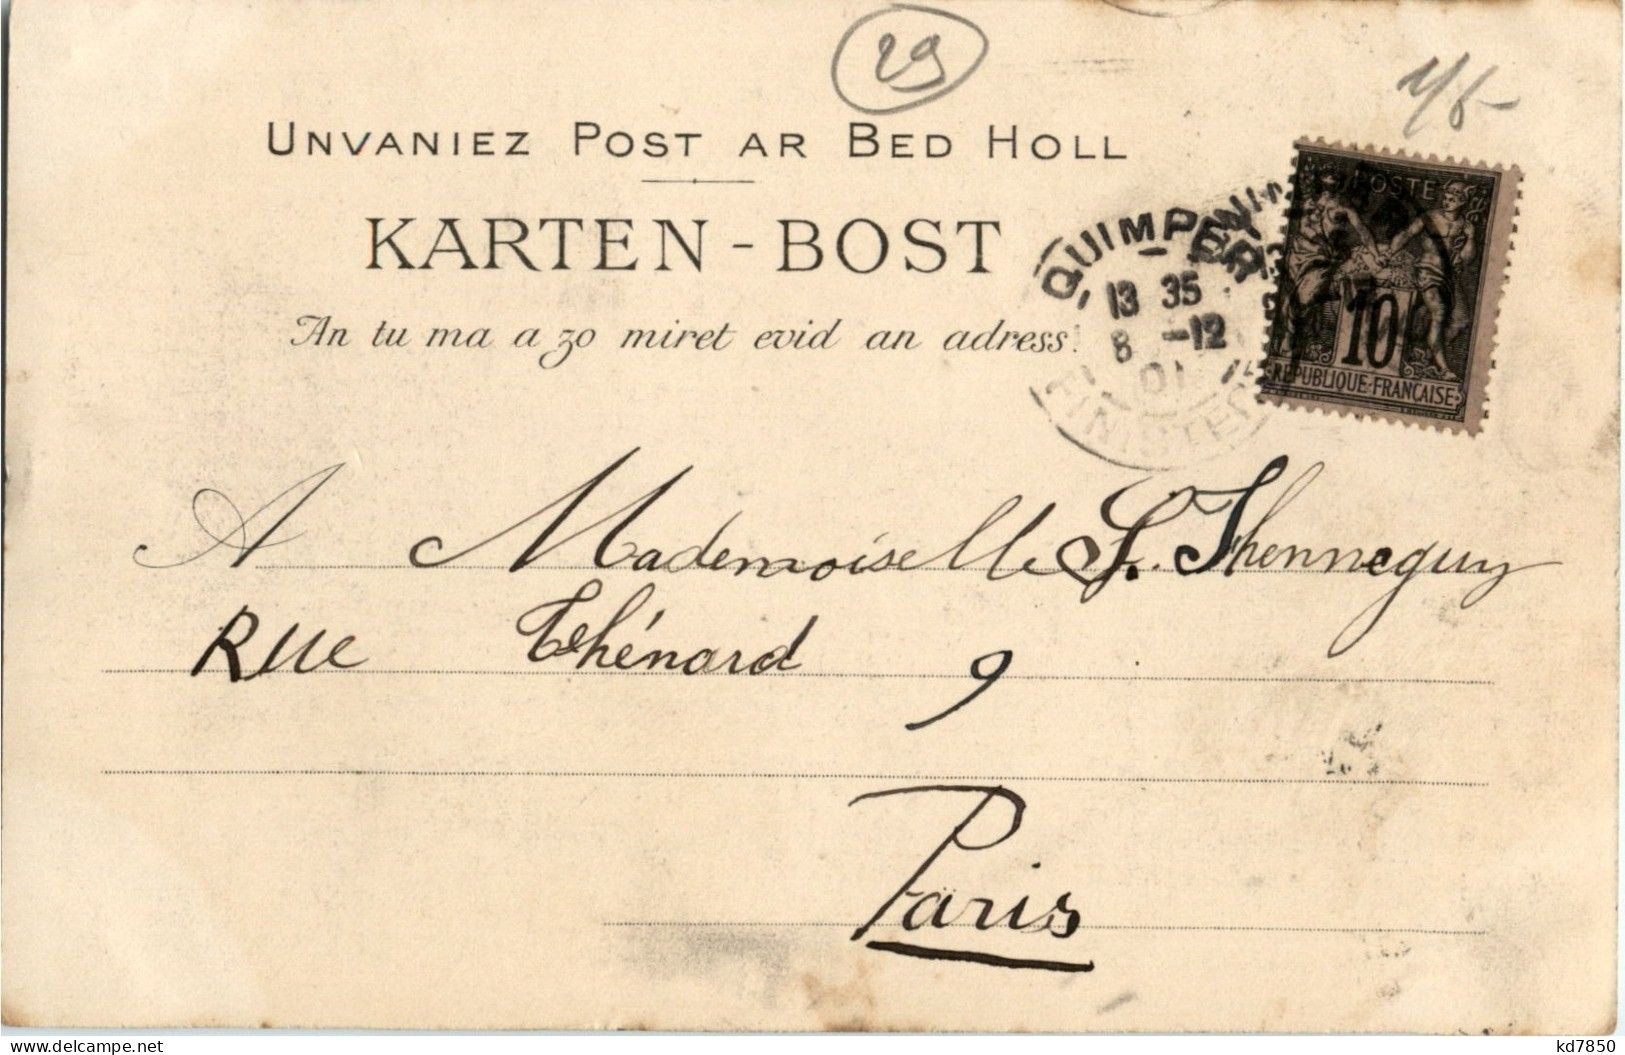 29
UNVANIEZ POST AR BED HOLL
KARTEN-BOST
An tu ma a zo miret evid an adress.
QUIMPER
13 35
8 -12
01
FINISTERE
POSTE
10
REPUBLIQUE FRANÇAISE
A Mademoiselle S. Thenneguy
Rue Thénard 9
Paris
www.delcampe.net
kd7850